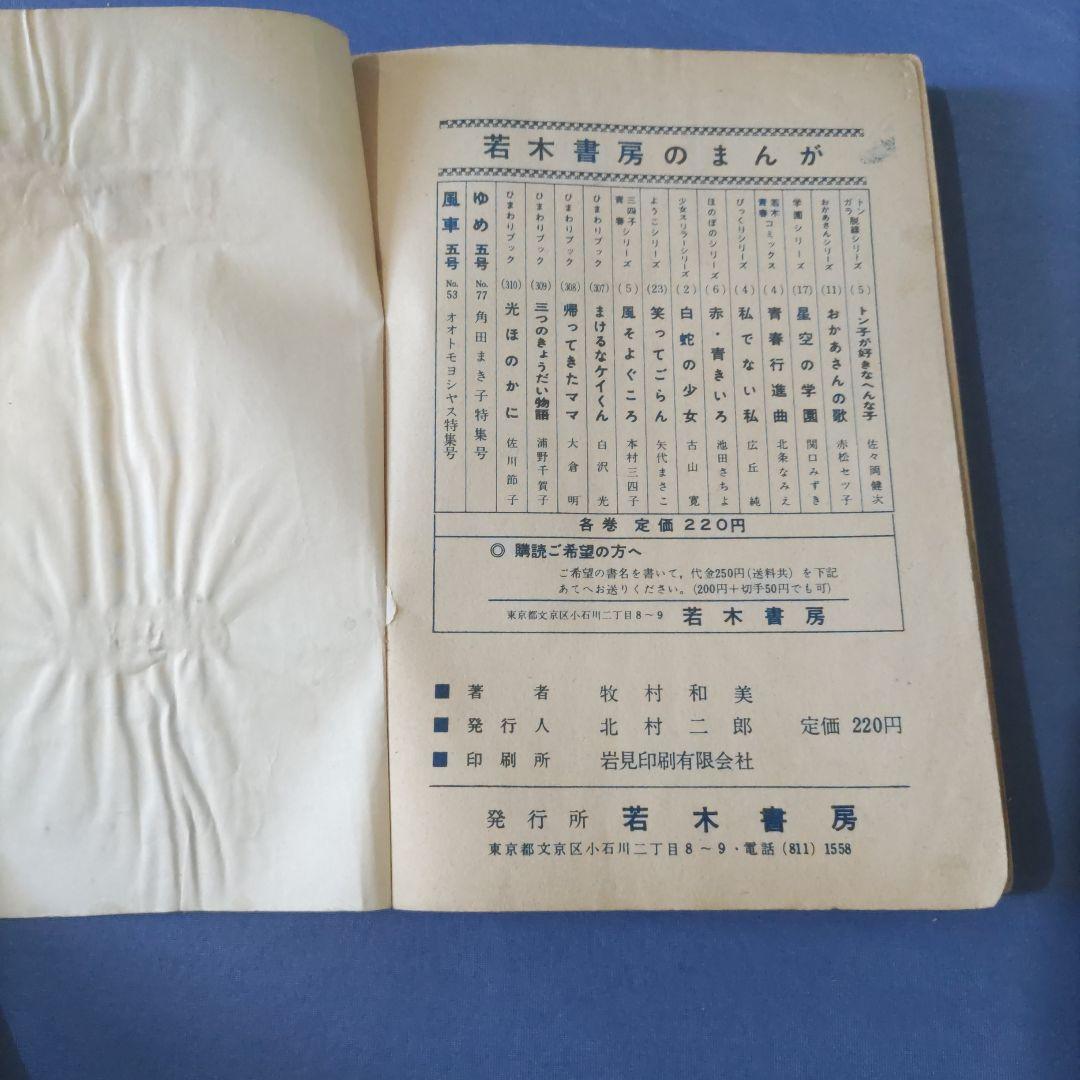 若木書房のまんが
トンガラ脱線シリーズ (5) トン子が好きなへんな子 佐々岡健次
おかあさんシリーズ (11) おかあさんの歌 赤松セツ子
学園シリーズ (17) 星空の学園 関口みずき
若木青春コミックス (4) 青春行進曲 北条なみえ
びっくりシリーズ (4) 私でない私 広丘純
ほのぼのシリーズ (6) 赤・青きいろ 池田さちよ
少女スリラーシリーズ (2) 白蛇の少女 古山寛
ようこシリーズ (23) 笑ってごらん 矢代まさこ
三四子青春シリーズ (5) 風そよぐころ 本村三四子
ひまわりブック (307) まけるなケイくん 白沢光
ひまわりブック (308) 帰ってきたママ 大倉明
ひまわりブック (309) 三つのきょうだい物語 浦野千賀子
ひまわりブック (310) 光ほのかに 佐川節子
ゆめ 五号 No.77 角田まき子特集号
風車 五号 No.53 オオトモヨシヤス特集号
各巻 定価220円
◎ 購読ご希望の方へ
ご希望の書名を書いて,代金250円(送料共)を下記
あてへお送りください。(200円+切手50円でも可)
東京都文京区小石川二丁目8～9 若木書房
■ 著者 牧村和美
■ 発行人 北村二郎 定価 220円
■ 印刷所 岩見印刷有限会社
発行所 若木書房
東京都文京区小石川二丁目8～9・電話(811)1558